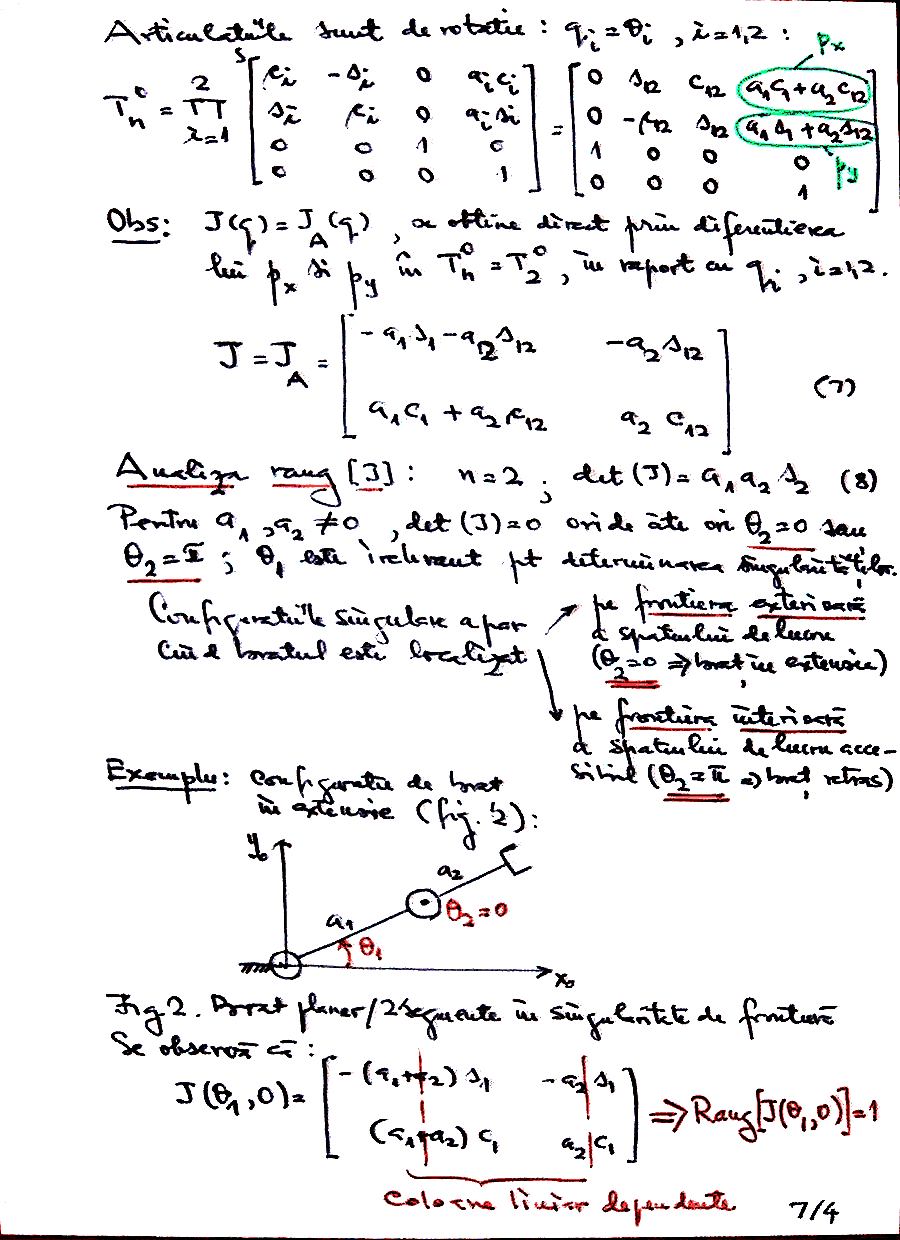 Articulatiile sunt de rotatie : qᵢ = θᵢ , i=1,2 :
px
Tₙ⁰ = ∏ᵢ₌₁² [cᵢ -sᵢ 0 aᵢcᵢ ; sᵢ cᵢ 0 aᵢsᵢ ; 0 0 1 0 ; 0 0 0 1] = [0 s₁₂ c₁₂ a₁c₁+a₂c₁₂ ; 0 -c₁₂ s₁₂ a₁s₁+a₂s₁₂ ; 1 0 0 0 ; 0 0 0 1]
py
Obs: J(q) = J_A(q) , se obtine direct prin diferentierea
lui px si py în Tₙ⁰ = T₂⁰ , in raport cu qᵢ , i=1,2.
J = J_A = [-a₁s₁-a₁₂s₁₂ -a₂s₁₂ ; a₁c₁+a₂c₁₂ a₂c₁₂] (7)
Analiza rang [J] : n=2 ; det(J) = a₁a₂s₂ (8)
Pentru a₁,a₂ ≠ 0 , det(J)=0 ori de câte ori θ₂=0 sau
θ₂=π ; θ₁ este irelevant pt determinarea singularitatilor.
Configuratiile singulare apar
cînd bratul este localizat
pe frontiera exterioară
a spatiului de lucru
(θ₂=0 ⇒ brat in extensie)
pe frontiera interioară
a spatiului de lucru acce-
sibil (θ₂=π ⇒ brat retras)
Exemplu: configuratie de brat
în extensie (fig. 2):
y₀
a₂
θ₂=0
a₁
θ₁
x₀
Fig 2. Brat planar/2segmente in singularitate de frontieră
Se observă că :
J(θ₁,0) = [-(a₁+a₂)s₁ -a₂s₁ ; (a₁+a₂)c₁ a₂c₁] ⇒ Rang[J(θ₁,0)]=1
Coloane liniar dependente
7/4